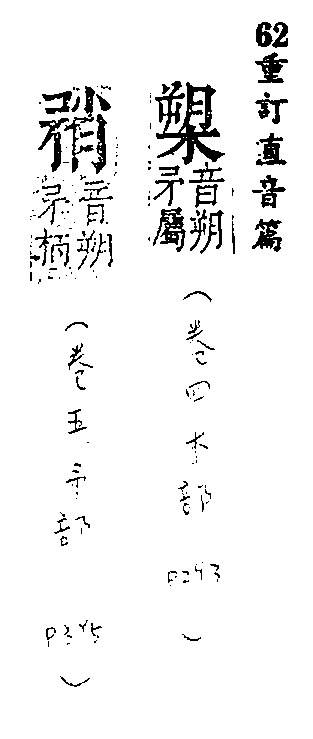 62重訂直音篇
槊音朔矛屬
(卷四木部 P293)
矟音朔矛柄
(卷五矛部 P345)